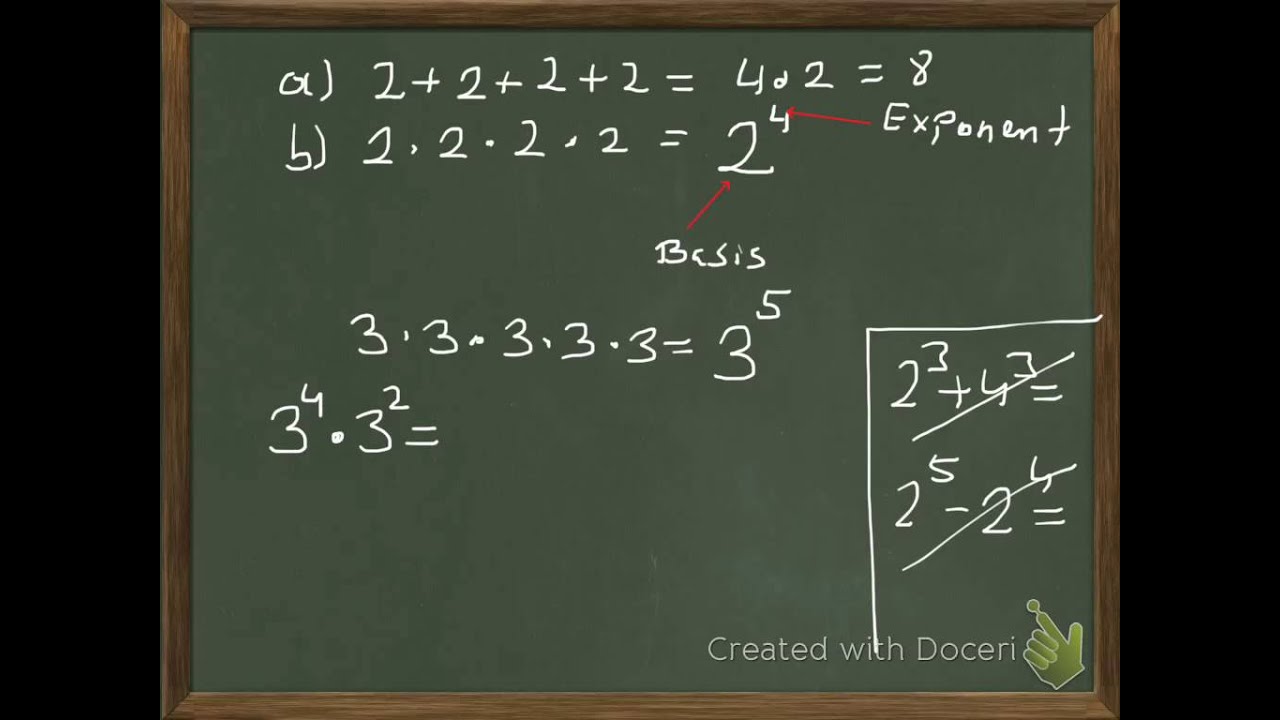 a) 2+2+2+2 = 4·2 = 8
b) 2·2·2·2 = 2⁴
Exponent
Basis
3·3·3·3·3 = 3⁵
3⁴·3² =
2³+4³=
2⁵-2⁴=
Created with Doceri